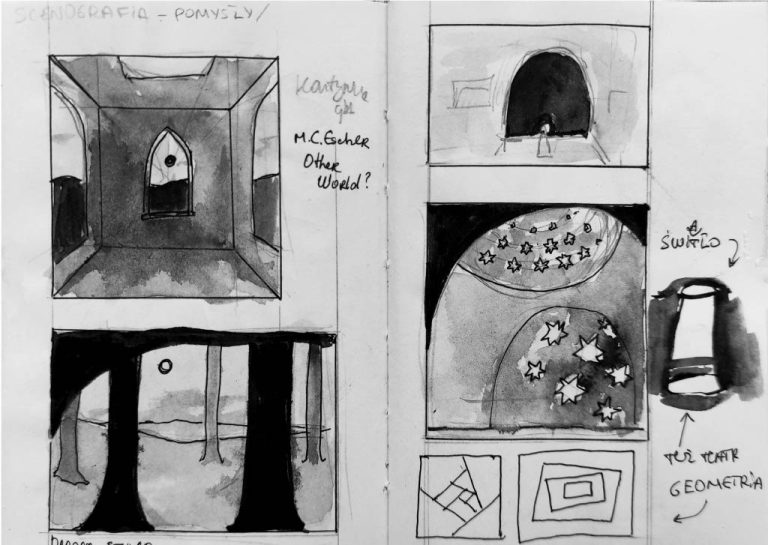 SCENOGRAFIA - POMYSŁY/
M.C. Escher
Other
World?
ŚWIATŁO
TEŻ TEATR
GEOMETRIA